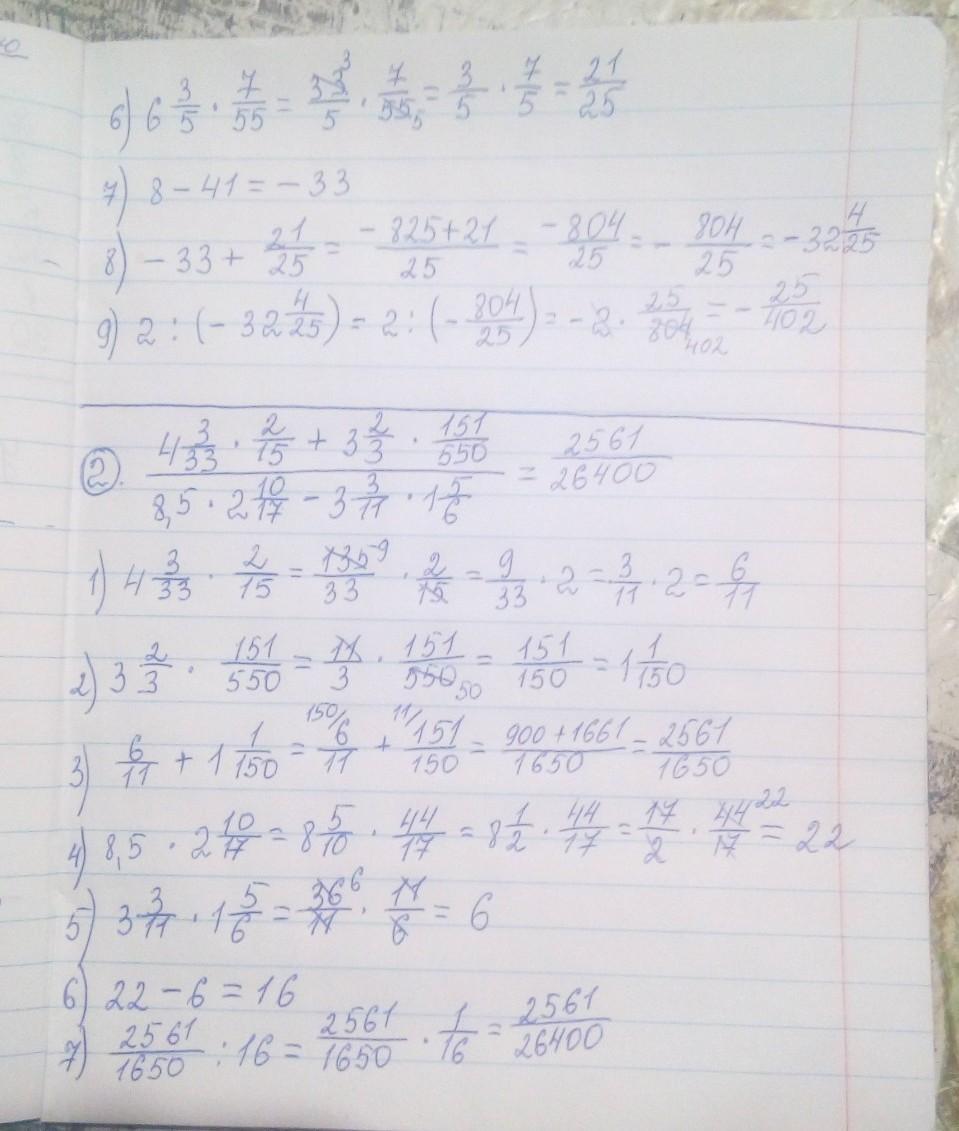 6) 6 3/5 · 7/55 = 33 3/5 · 7/55 5 = 3/5 · 7/5 = 21/25
7) 8 - 41 = - 33
8) - 33 + 21/25 = - 825+21/25 = - 804/25 = - 804/25 = - 32 4/25
9) 2 : (- 32 4/25) = 2 : (- 804/25) = - 2 · 25/804 402 = - 25/402
2. 4 3/33 · 2/15 + 3 2/3 · 151/550 / 8,5 · 2 10/17 - 3 3/11 · 1 5/6 = 2561/26400
1) 4 3/33 · 2/15 = 135 9/33 · 2/15 = 9/33 · 2 = 3/11 · 2 = 6/11
2) 3 2/3 · 151/550 = 11/3 · 151/550 50 = 151/150 = 1 1/150
3) 6/11 + 1 1/150 = 150/ 6/11 + 11/ 151/150 = 900 + 1661/1650 = 2561/1650
4) 8,5 · 2 10/17 = 8 5/10 · 44/17 = 8 1/2 · 44/17 = 17/2 · 44 22/17 = 22
5) 3 3/11 · 1 5/6 = 36 6/11 · 11/6 = 6
6) 22 - 6 = 16
7) 2561/1650 : 16 = 2561/1650 · 1/16 = 2561/26400